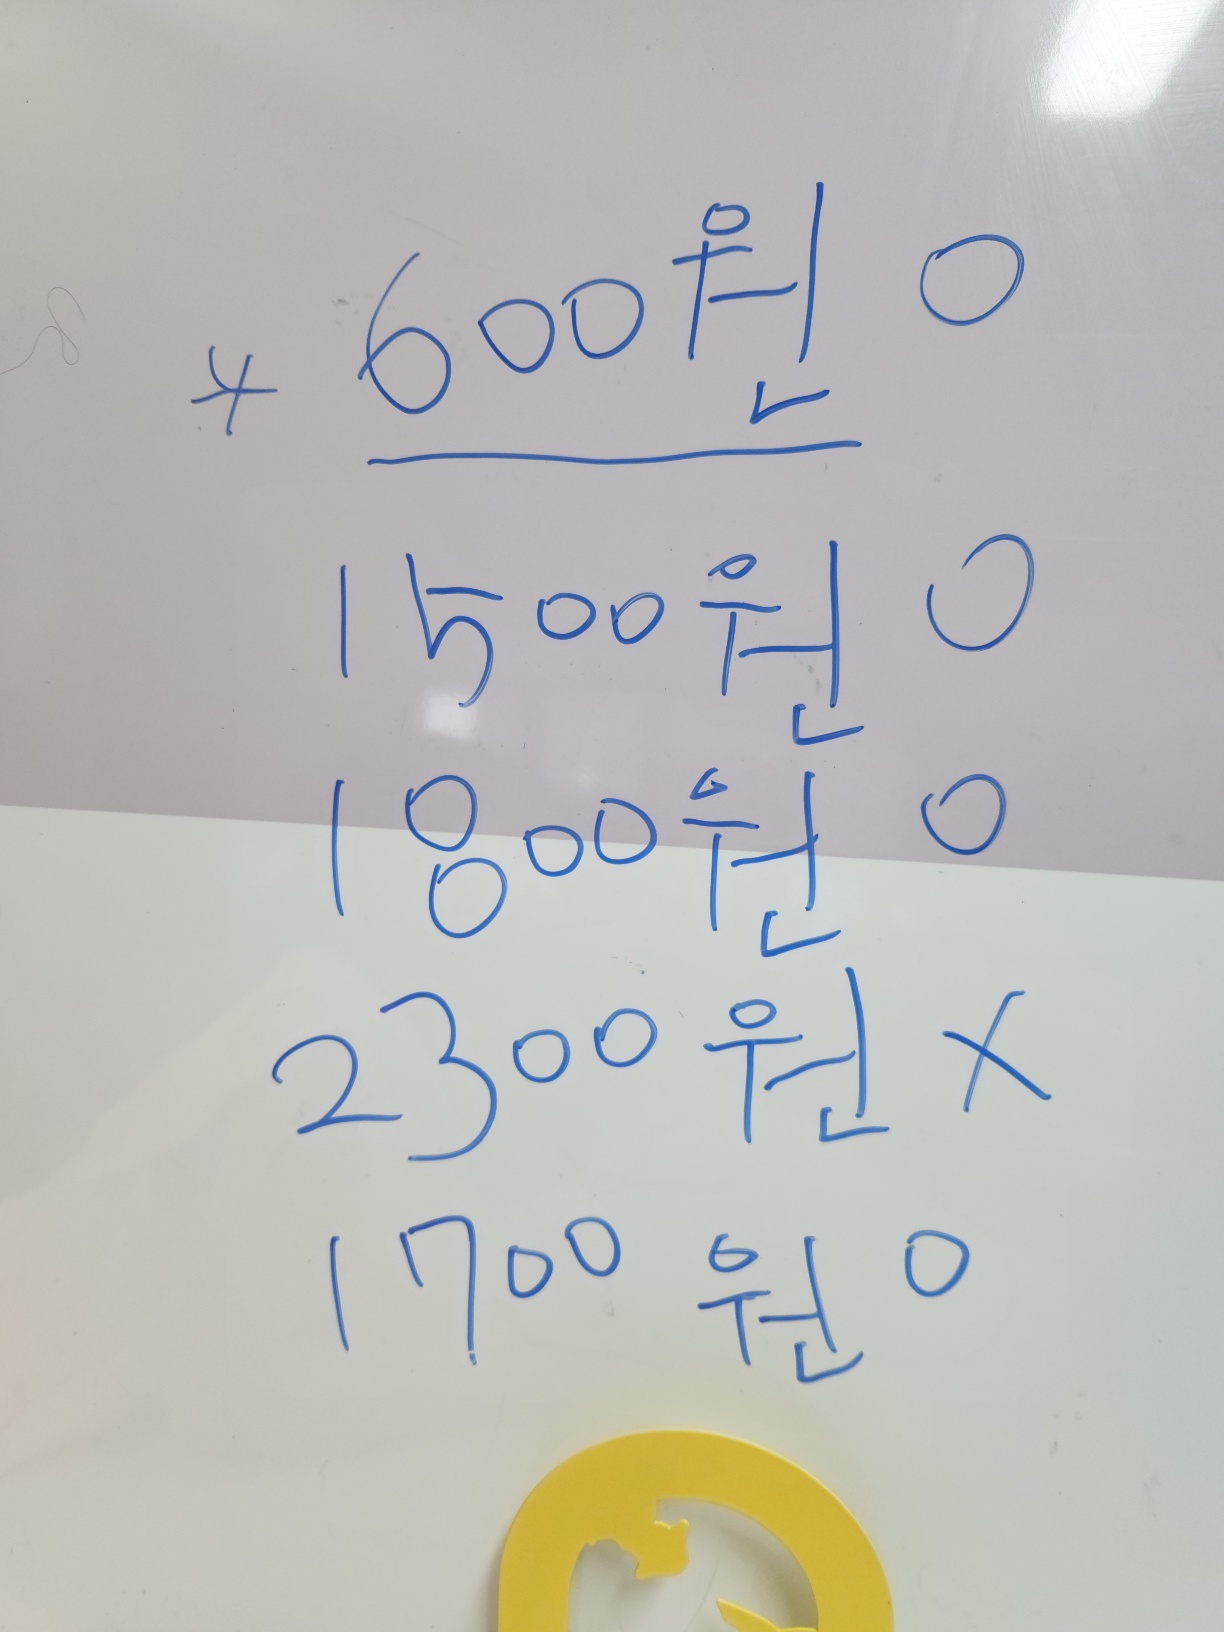 * 600원 O
1500원 O
1800원 O
2300원 X
1700원 O